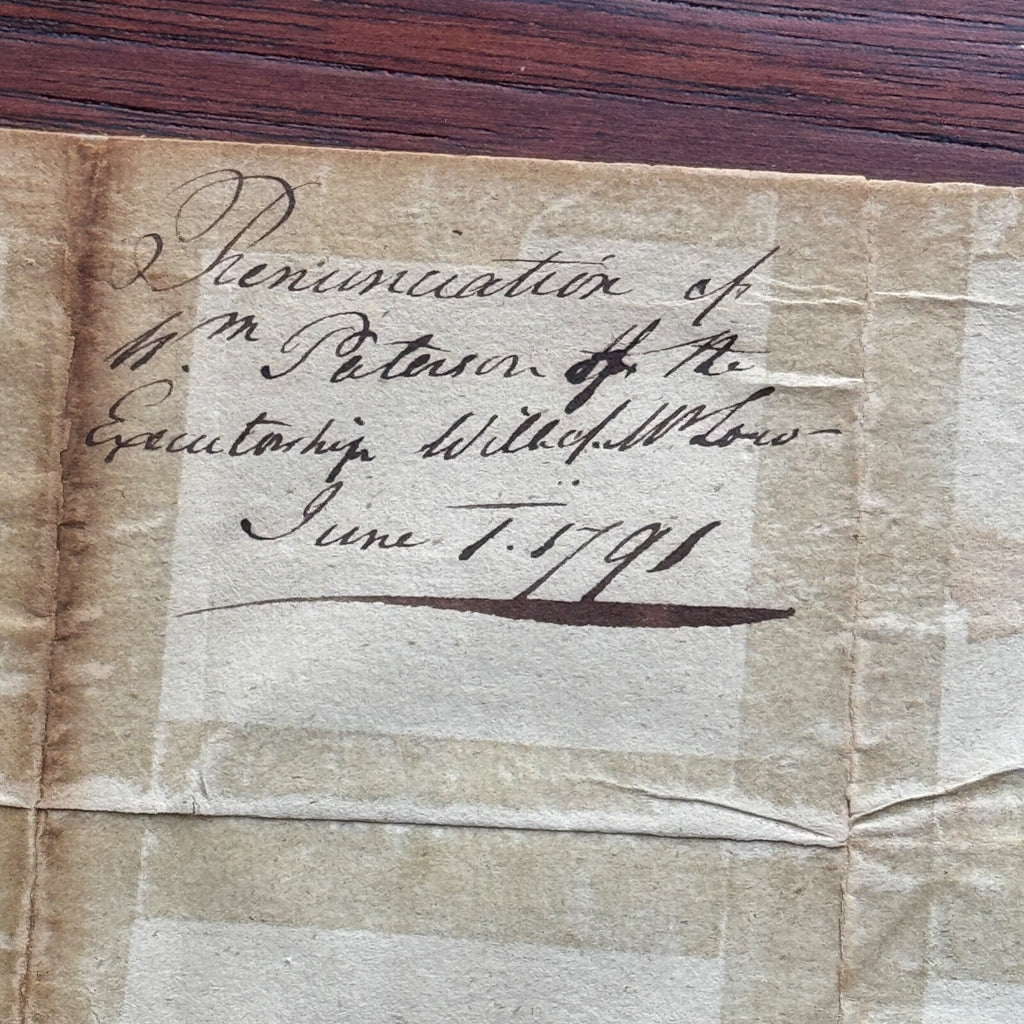 Renunciation of
Wm Paterson of the
Executorship Will of Mr Low
June 1. 1791